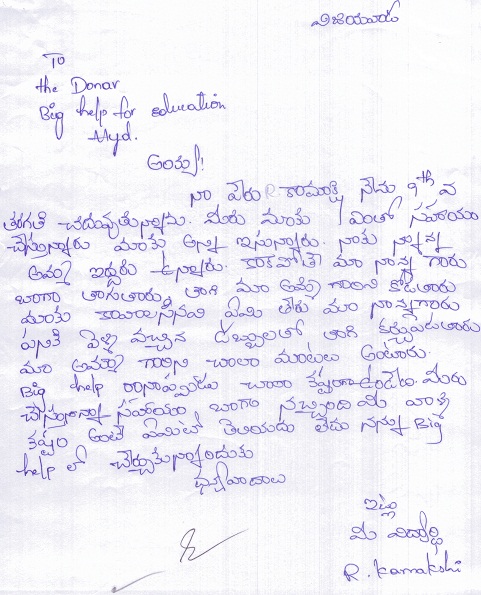 విజయవాడ
To
the Donar
Big help for education
Hyd.
అంమ్మ!
నా పేరు R కామాక్షి నేను 9th వ
తరగతి చదువుతున్నాను. మీరు మాకు ఏంతో సహాయం
చేస్తున్నారు మాకు అన్ని ఇస్తున్నారు. నాకు నాన్న
అమ్మ ఇద్దరు ఉన్నారు. కాకపోతే మా నాన్న గారు
బాగా తాగుతారు, తాగి మా అమ్మ గారిని కోడతారు
మాకు కావాలసినవి ఏమి తేరు మా నాన్నగారు
పనికి వెళ్లి వచ్చిన డబ్బులతో తాగి ఖర్చుపెడతారు
మా అమ్మ గారిని చాలా మాటలు అంటారు.
Big help రానప్పుడు చాలా కష్టంగా ఉండేది. మీరు
చేస్తున్న సహాయం బాగా నచ్చింది మీ వల్ల
కష్టం అంటే ఏమిటో తెలియదు లేదు నన్ను Big
help లో చేర్చుకున్నందుకు
ధన్యవాదాలు
ఇట్లు
మీ విద్యార్థి
R. Kamakshi